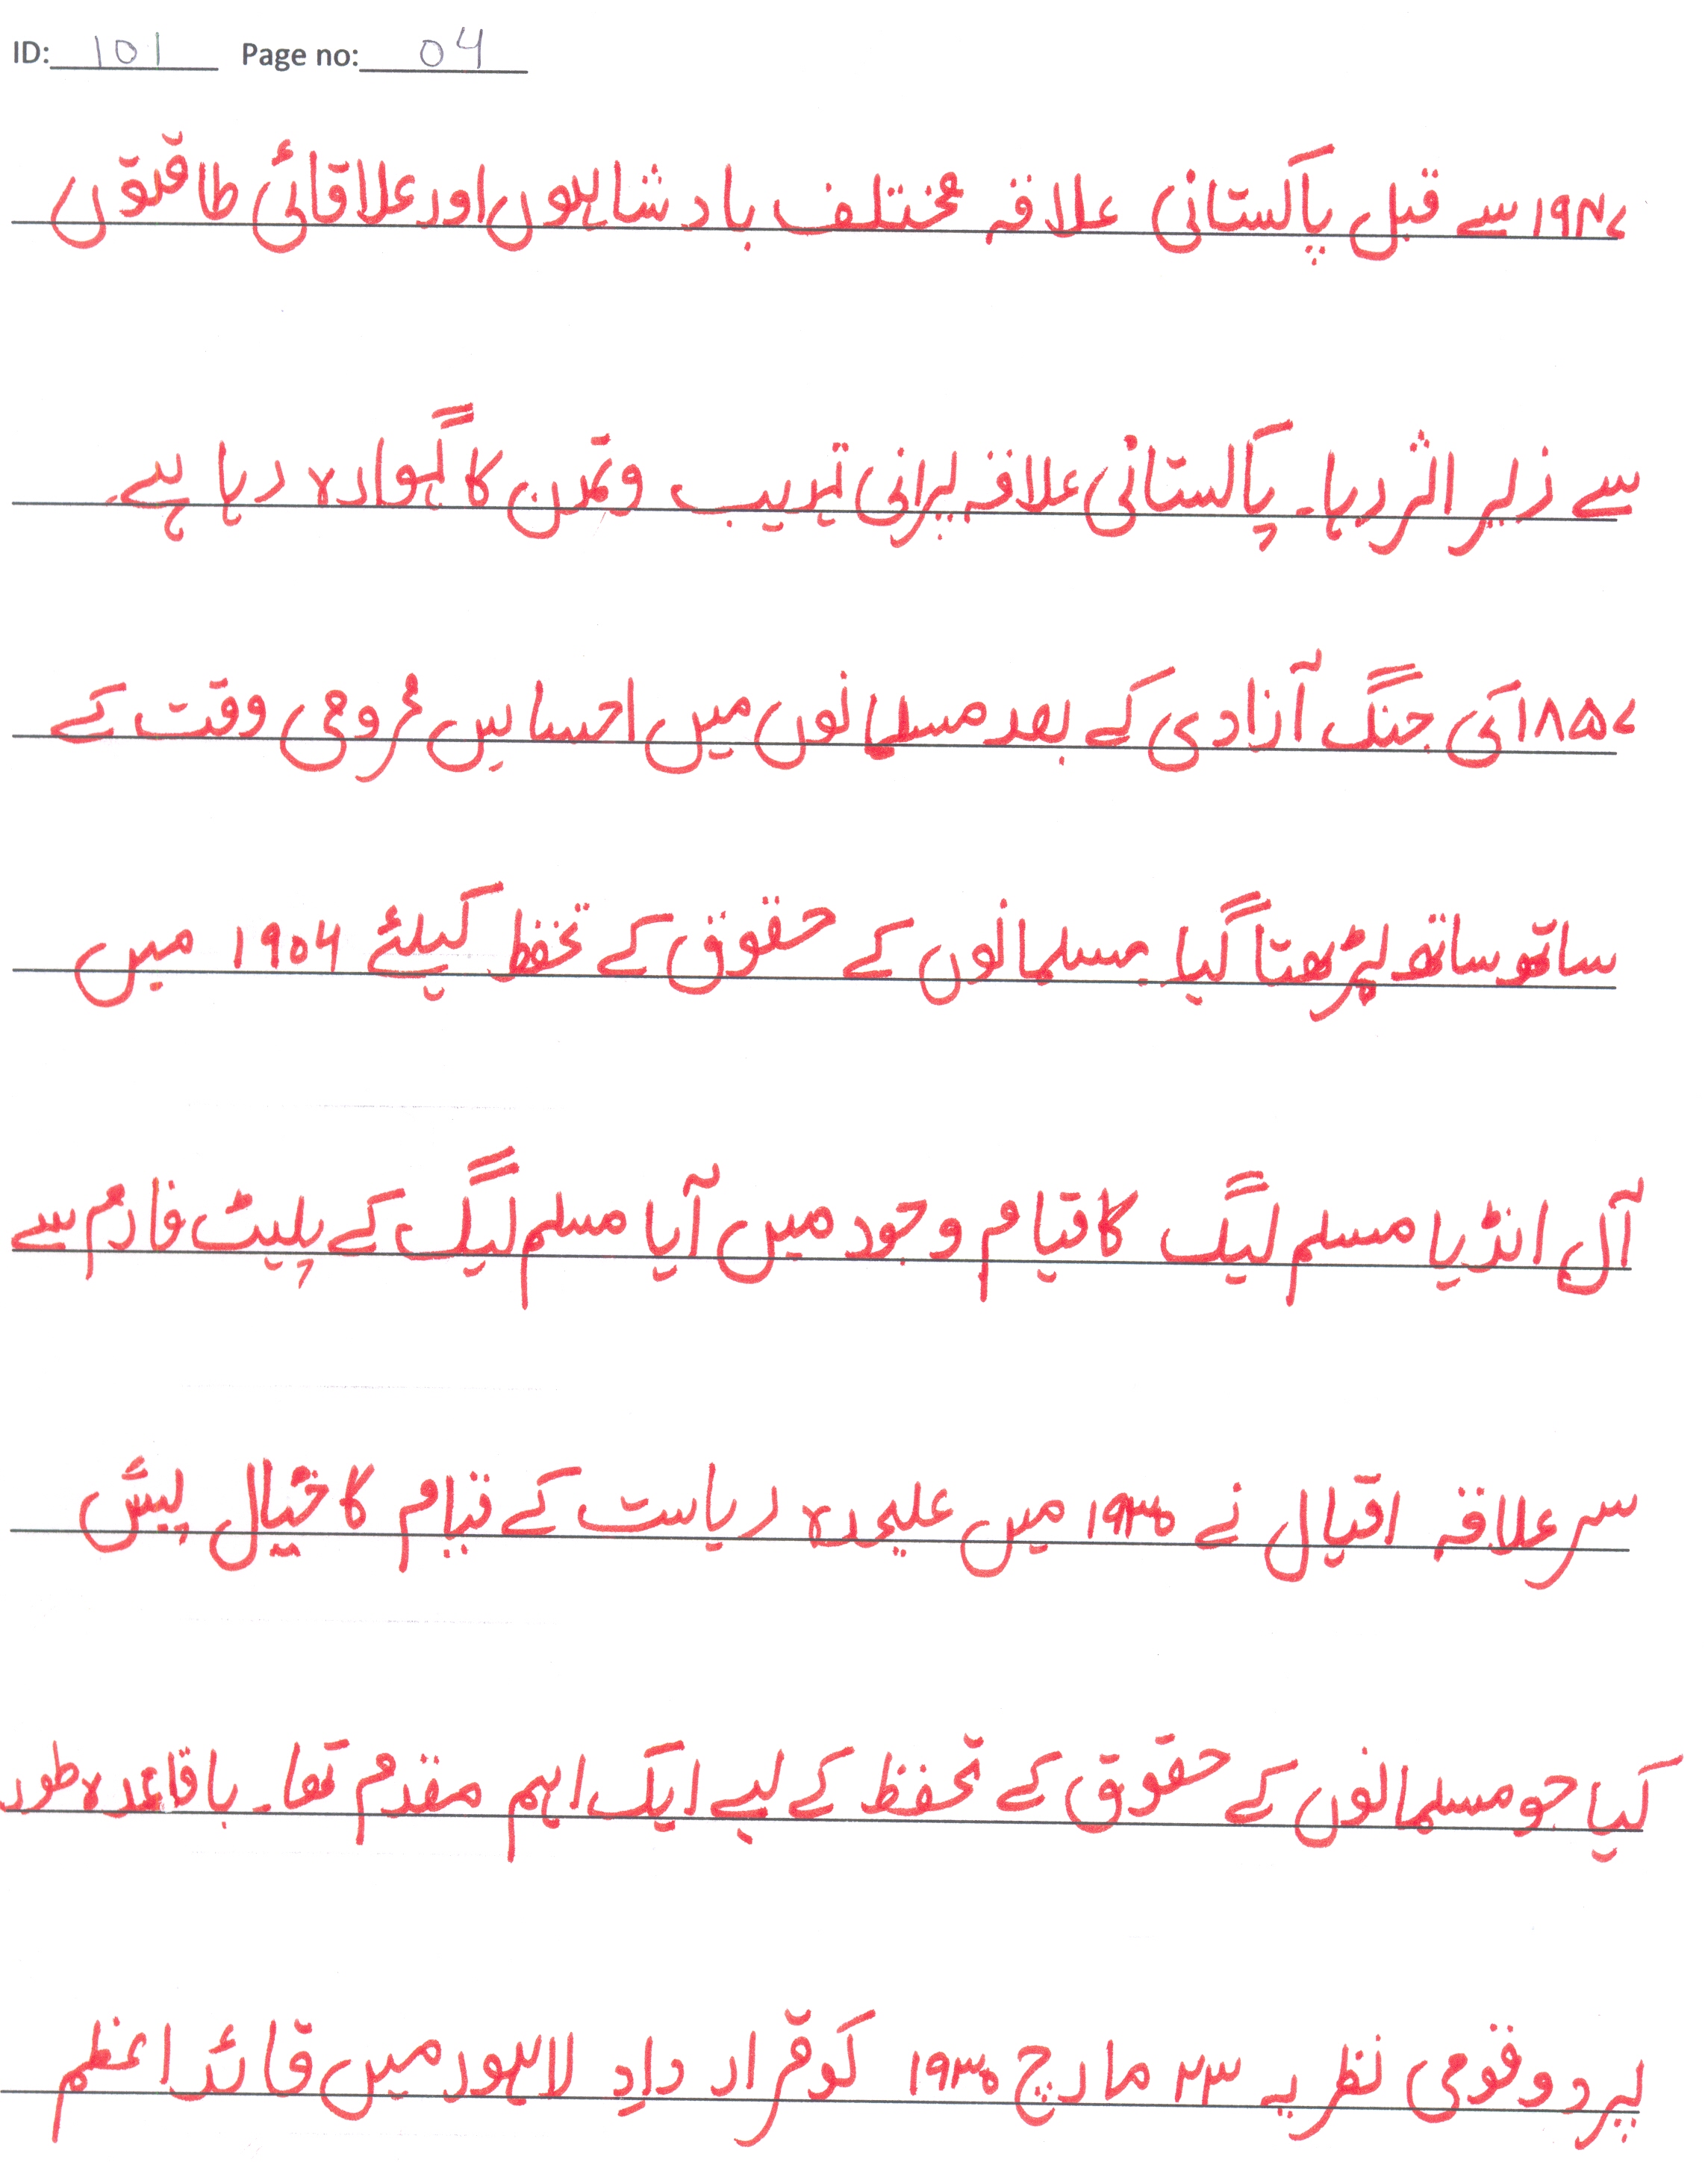 ID: 101 Page no: 04
۱۹۴۷ سے قبل پاکستانی علاقہ مختلف بادشاہوں اور علاقائی طاقتوں
سے زیر اثر رہا۔ پاکستانی علاقہ پرانی تہذیب وتمدن کا گہوارہ رہا ہے۔
۱۸۵۷ کی جنگ آزادی کے بعد مسلمانوں میں احساس محرومی وقت کے
ساتھ ساتھ بڑھتا گیا مسلمانوں کے حقوق کے تحفظ کیلئے ۱۹۰۶ میں
آل انڈیا مسلم لیگ کا قیام وجود میں آیا مسلم لیگ کے پلیٹ فارم سے
سر علاقہ اقبال نے ۱۹۳۰ میں علیحدہ ریاست کے قیام کا خیال پیش
کیا جو مسلمانوں کے حقوق کے تحفظ کے لیے ایک اہم مقدم تھا۔ باقاعدہ طور
پر دو قومی نظریہ ۲۳ مارچ ۱۹۳۰ کو قرار داد لاہور میں قائد اعظم